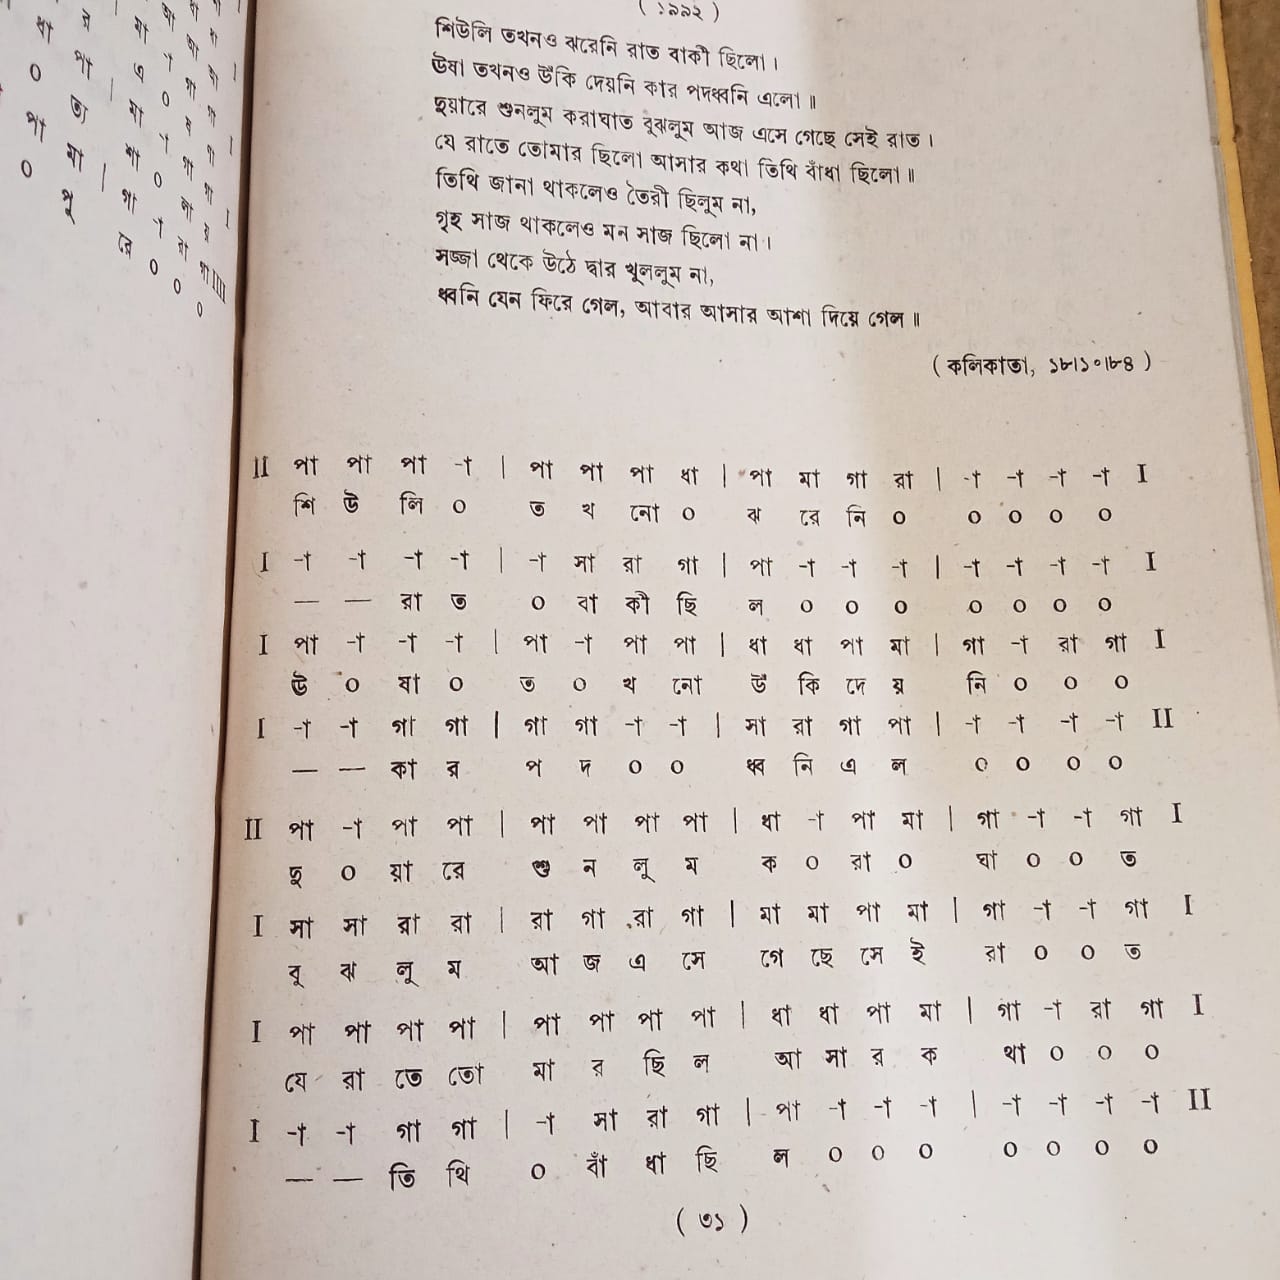 (১৯৯২)
শিউলি তখনও ঝরেনি রাত বাকী ছিলো।
ঊষা তখনও উঁকি দেয়নি কার পদধ্বনি এলো॥
দুয়ারে শুনলুম করাঘাত বুঝলুম আজ এসে গেছে সেই রাত।
যে রাতে তোমার ছিলো আসার কথা তিথি বাঁধা ছিলো॥
তিথি জানা থাকলেও তৈরী ছিলুম না,
গৃহ সাজ থাকলেও মন সাজ ছিলো না।
সজ্জা থেকে উঠে দ্বার খুললুম না,
ধ্বনি যেন ফিরে গেল, আবার আসার আশা দিয়ে গেল॥
(কলিকাতা, ১৮।১০।৮৪)
II পা পা পা -া | পা পা পা ধা | পা মা গা রা | -া -া -া -া I
শি উ লি ০ ত খ নো ০ ঝ রে নি ০ ০ ০ ০ ০
I -া -া -া -া | -া সা রা গা | পা -া -া -া | -া -া -া -া I
— — রা ত ০ বা কী ছি ল ০ ০ ০ ০ ০ ০ ০
I পা -া -া -া | পা -া পা পা | ধা ধা পা মা | গা -া রা গা I
ঊ ০ ষা ০ ত ০ খ নো উঁ কি দে য় নি ০ ০ ০
I -া -া গা গা | গা গা -া -া | সা রা গা পা | -া -া -া -া II
— — কা র প দ ০ ০ ধ্ব নি এ ল ০ ০ ০ ০
II পা -া পা পা | পা পা পা পা | ধা -া পা মা | গা -া -া গা I
দু ০ য়া রে শু ন লু ম ক ০ রা ০ ঘা ০ ০ ত
I সা সা রা রা | রা গা রা গা | মা মা পা মা | গা -া -া গা I
বু ঝ লু ম আ জ এ সে গে ছে সে ই রা ০ ০ ত
I পা পা পা পা | পা পা পা পা | ধা ধা পা মা | গা -া রা গা I
যে রা তে তো মা র ছি ল আ সা র ক থা ০ ০ ০
I -া -া গা গা | -া সা রা গা | পা -া -া -া | -া -া -া -া II
— — তি থি ০ বাঁ ধা ছি ল ০ ০ ০ ০ ০ ০ ০
(৩১)